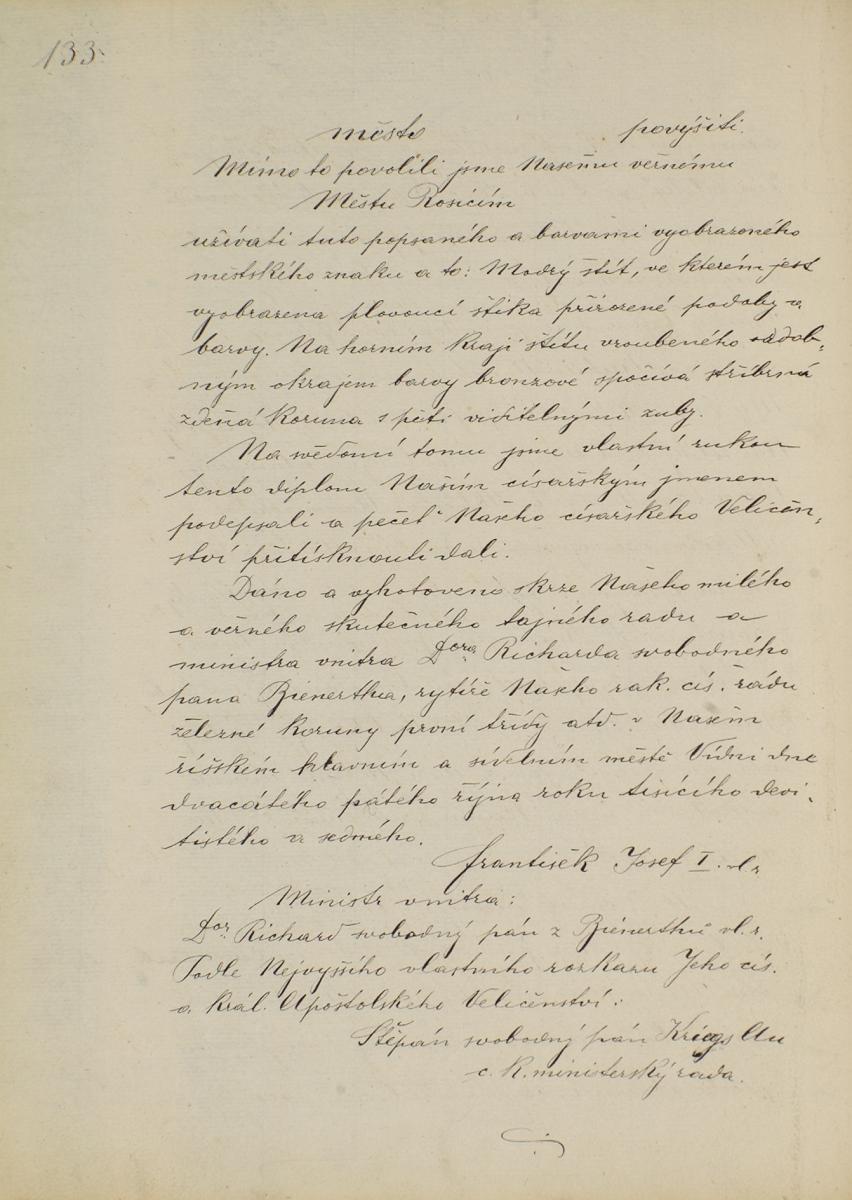 133.
město povýšiti.
Mimo to povolili jsme Našemu věrnému
Městu Rosicím
užívati tuto popsaného a barvami vyobrazeného
městského znaku a to: Modrý štít, ve kterém jest
vyobrazena plovoucí štika přirozené podoby a
barvy. Na horním kraji štítu vroubeného ozdob-
ným okrajem barvy bronzové spočívá stříbrná
zděná koruna s pěti viditelnými zuby.
Na svědomí tomu jsme vlastní rukou
tento diplom Naším císařským jmenem
podepsali a pečeť Našeho císařského Veličen-
ství přitisknouti dali.
Dáno a vyhotoveno skrze Našeho milého
a věrného skutečného tajného radu a
ministra vnitra Dora Richarda svobodného
pana Bienertha, rytíře Našeho rak. cís. řádu
železné koruny první třídy atd. v Našem
říšském hlavním a sídelním městě Vídni dne
dvacátého pátého října roku tisícího devi-
tistého a sedmého.
František Josef I. vl. r.
Ministr vnitra:
Dor Richard svobodný pán z Bienerthů vl. r.
Podle Nejvyššího vlastního rozkazu Jeho cís.
a král. Apoštolského Veličenství:
Štěpán svobodný pán Kriegs Au
c. k. ministerský rada.